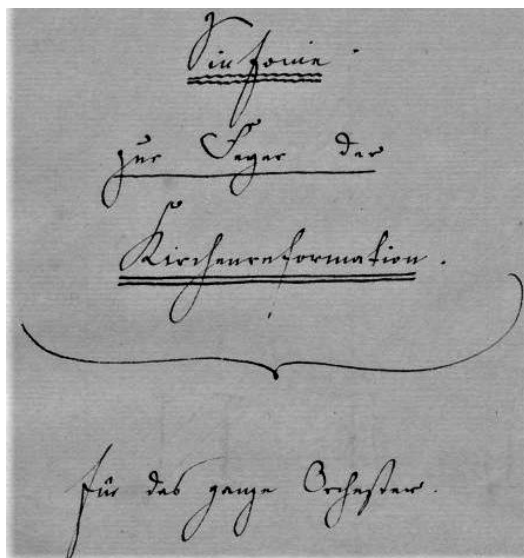 Sinfonie.
zur Feyer der
Kirchenreformation.
für das ganze Orchester.